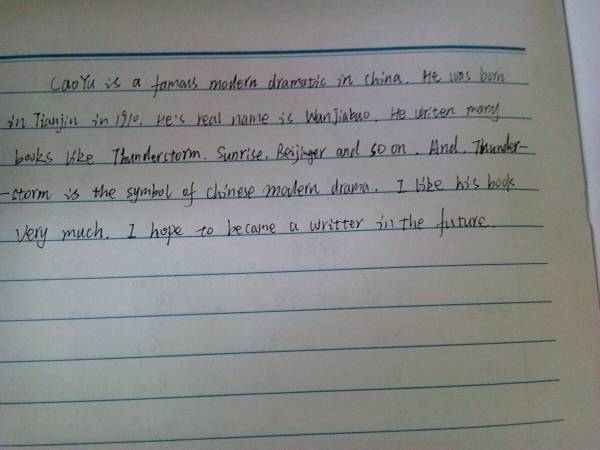 CaoYu is a famous modern dramatic in china. He was born
in Tianjin in 1910. He's real name is WanJiabao. He writen many
books like Thunderstorm. Sunrise. Beijinger and so on. And. Thunder-
-storm is the symbol of chinese modern drama. I like his book
very much. I hope to became a writter in the future.